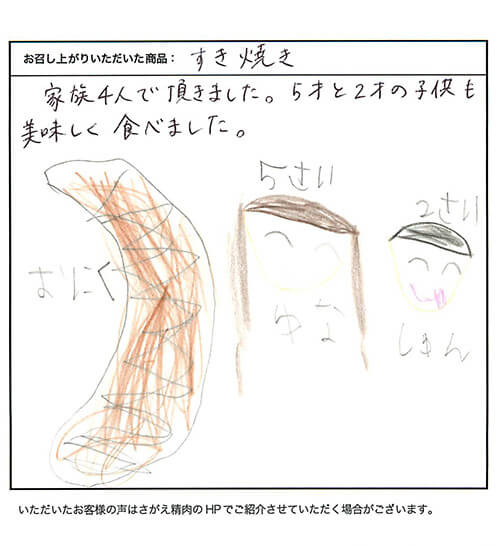 お召し上がりいただいた商品： すき焼き
家族4人で頂きました。5才と2才の子供も
美味しく食べました。
5さい
2さい
おにく
ゆな
いただいたお客様の声はさがえ精肉のHPでご紹介させていただく場合がございます。